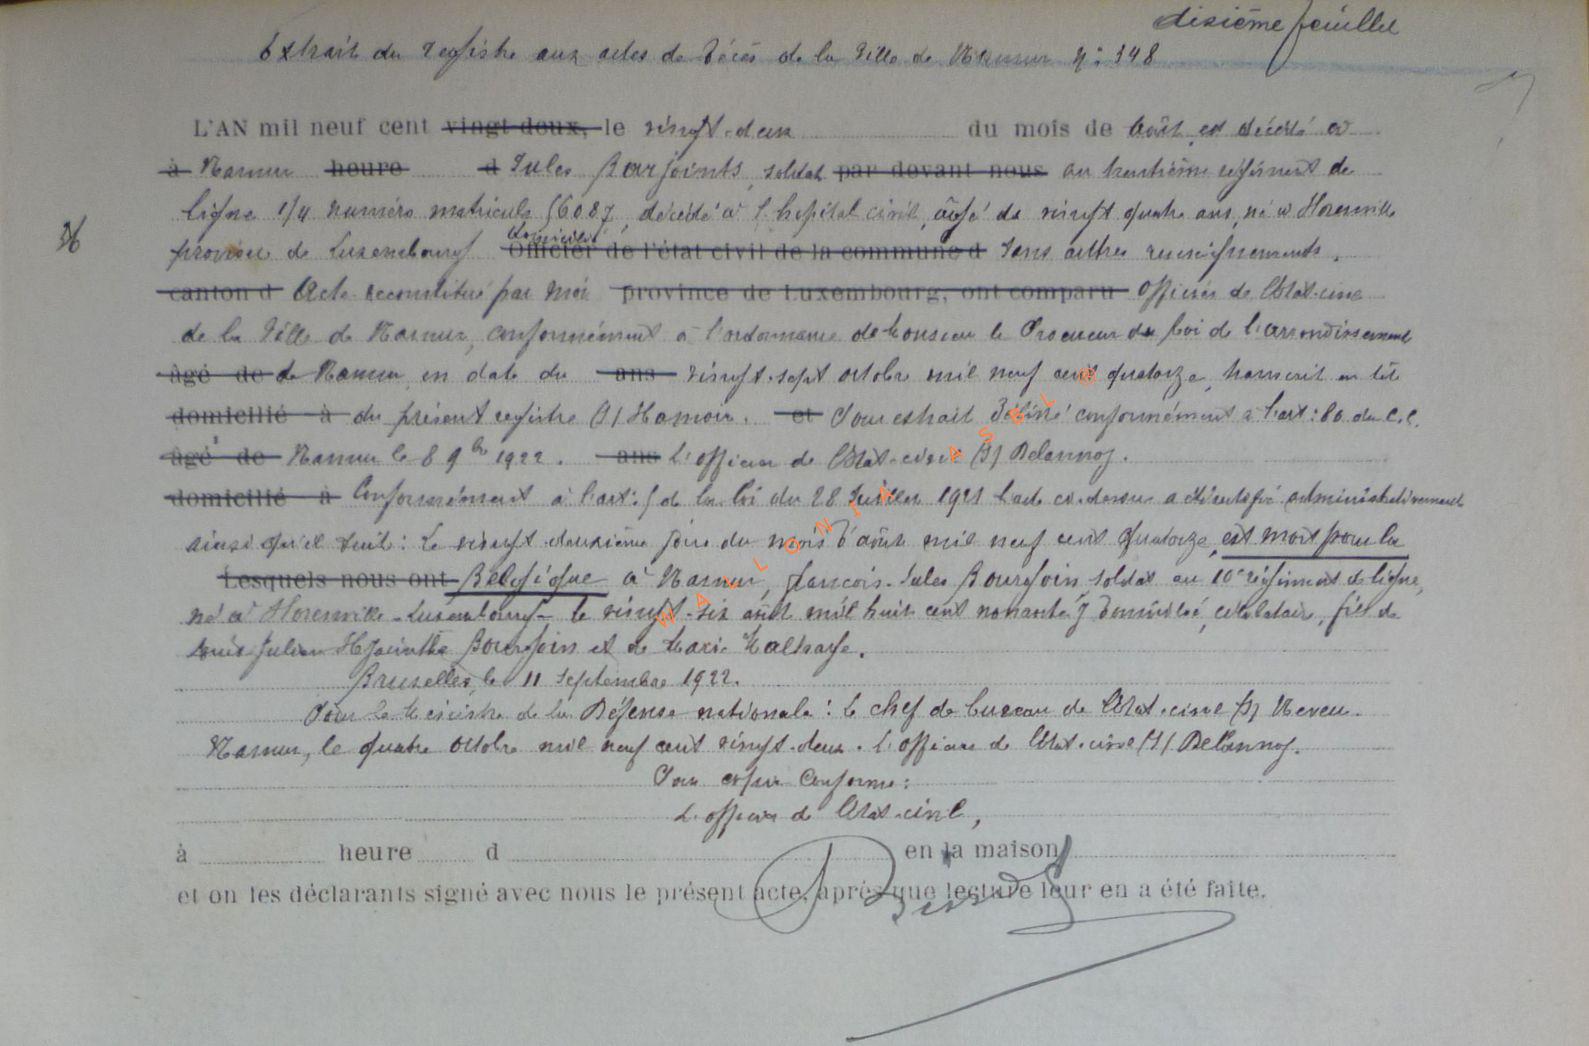 dixième feuillet
Extrait du registre aux actes de Décès de la Ville de Namur N°: 348
L'AN mil neuf cent vingt-deux, le vingt-deux du mois de Août, est décédé à
à Namur heure d Jules Bourjoints, soldat par devant nous au trentième régiment de
ligne 1/4 numéro matricule 56087, décédé à l'hopital civil, âgé de vingt quatre ans, né à Horenville
province de Luxembourg domicilié Officier de l'état civil de la commune d sans autres renseignements.
canton d Acte reconstitué par moi province de Luxembourg, ont comparu Officier de l'Etat-civil
de la Ville de Namur, conformément à l'ordonnance de Monsieur le Procureur du Roi de l'arrondissement
âgé de de Namur en date du ans vingt-sept octobre mil neuf cent quatorze, transcrit en tête
domicilié à du présent registre (s) Hamoir. et Pour extrait délivré conformément à l'art: 80 du C.C.
âgé de Namur le 8 9bre 1922. ans L'officier de l'Etat-civil (s) Delannoy.
domicilié à Conformément à l'art: 5 de la loi du 28 Juillet 1921 l'acte ci-dessus a été rectifié administrativement
ainsi qu'il suit: Le vingt-deuxième jour du mois d'août mil neuf cent quatorze, est mort pour la
Lesquels nous ont Belgique à Namur, François-Jules Bourgoin, soldat au 10e régiment de ligne,
né à Horenville-Luxembourg-le vingt-six août mil huit cent nonante, y domicilié, célibataire, fils de
Louis Julien Hyacinthe Bourgoin et de Marie Malhaye.
Bruxelles, le 11 septembre 1922.
Pour le Ministre de la Défense nationale: le chef de bureau de l'Etat-civil (s) Neveu.
Namur, le quatre octobre mil neuf cent vingt-deux. L'officier de l'Etat-civil (s) Delannoy.
Pour copie conforme:
L'officier de l'Etat-civil,
à heure d en la maison
et on les déclarants signé avec nous le présent acte, après que lecture leur en a été faite.
WALLONIA ASBL ©